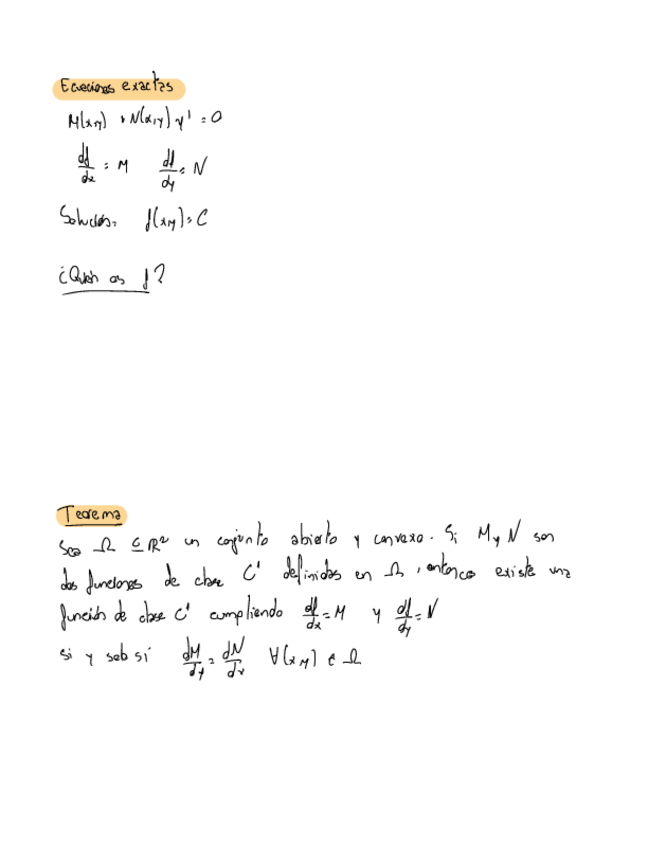 Ecuaciones exactas
M(x,y) + N(x,y) y' = 0
df/dx = M df/dy = N
Solución: f(x,y) = C
¿Quién es f?
Teorema
Sea Ω ⊆ ℝ² un conjunto abierto y convexo. Si M y N son
dos funciones de clase C' definidas en Ω, entonces existe una
función de clase C' cumpliendo df/dx = M y df/dy = N
si y solo si dM/dy = dN/dx ∀(x,y) ∈ Ω